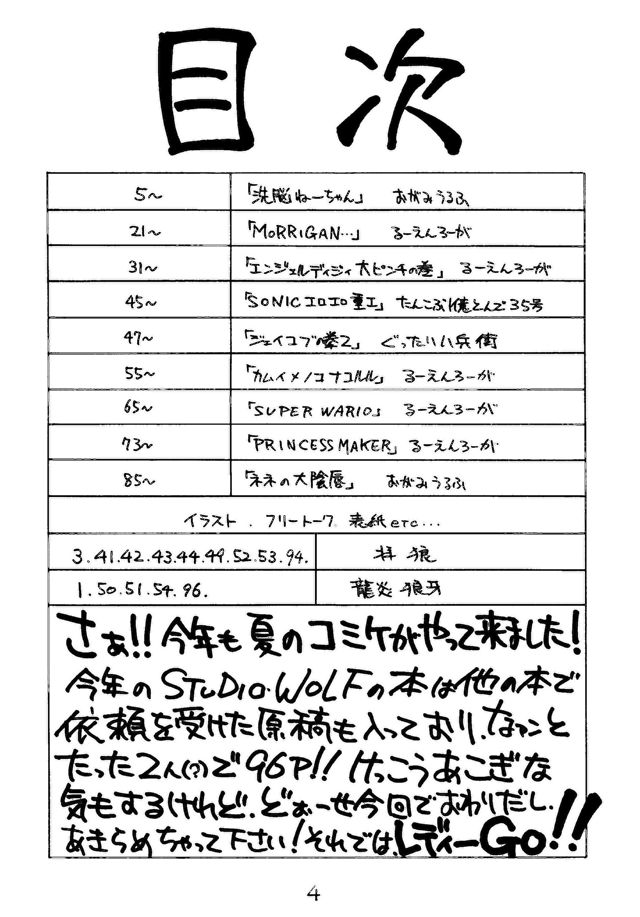 目次
5～ 「洗脳ねーちゃん」 おがみうるふ
21～ 「MORRIGAN…」 るーえんろーが
31～ 「エンジェルディジィ大ピンチの巻」 るーえんろーが
45～ 「SONICエロエロ重工」 たんこぶ1億とんで35号
47～ 「ジェイコブの拳2」 ぐったいハ兵街
55～ 「カムイメノコナコルル」 るーえんろーが
65～ 「SUPER WARIO」 るーえんろーが
73～ 「PRINCESS MAKER」 るーえんろーが
85～ 「ネネの大陰唇」 おがみうるふ
イラスト．フリートーク 表紙etc...
3.41.42.43.44.49.52.53.94. 拝 狼
1.50.51.54.96. 龍炎 狼牙
さぁ!!今年も夏のコミケがやって来ました!
今年のSTUDIO・WOLFの本は他の本で
依頼を受けた原稿も入っており、なァンと
たった2人(?)で96P!!けっこうあこぎな
気もするけれど、どぉーせ今回でおわりだし、
あきらめちゃって下さい!それでは、レディーGo!!
4